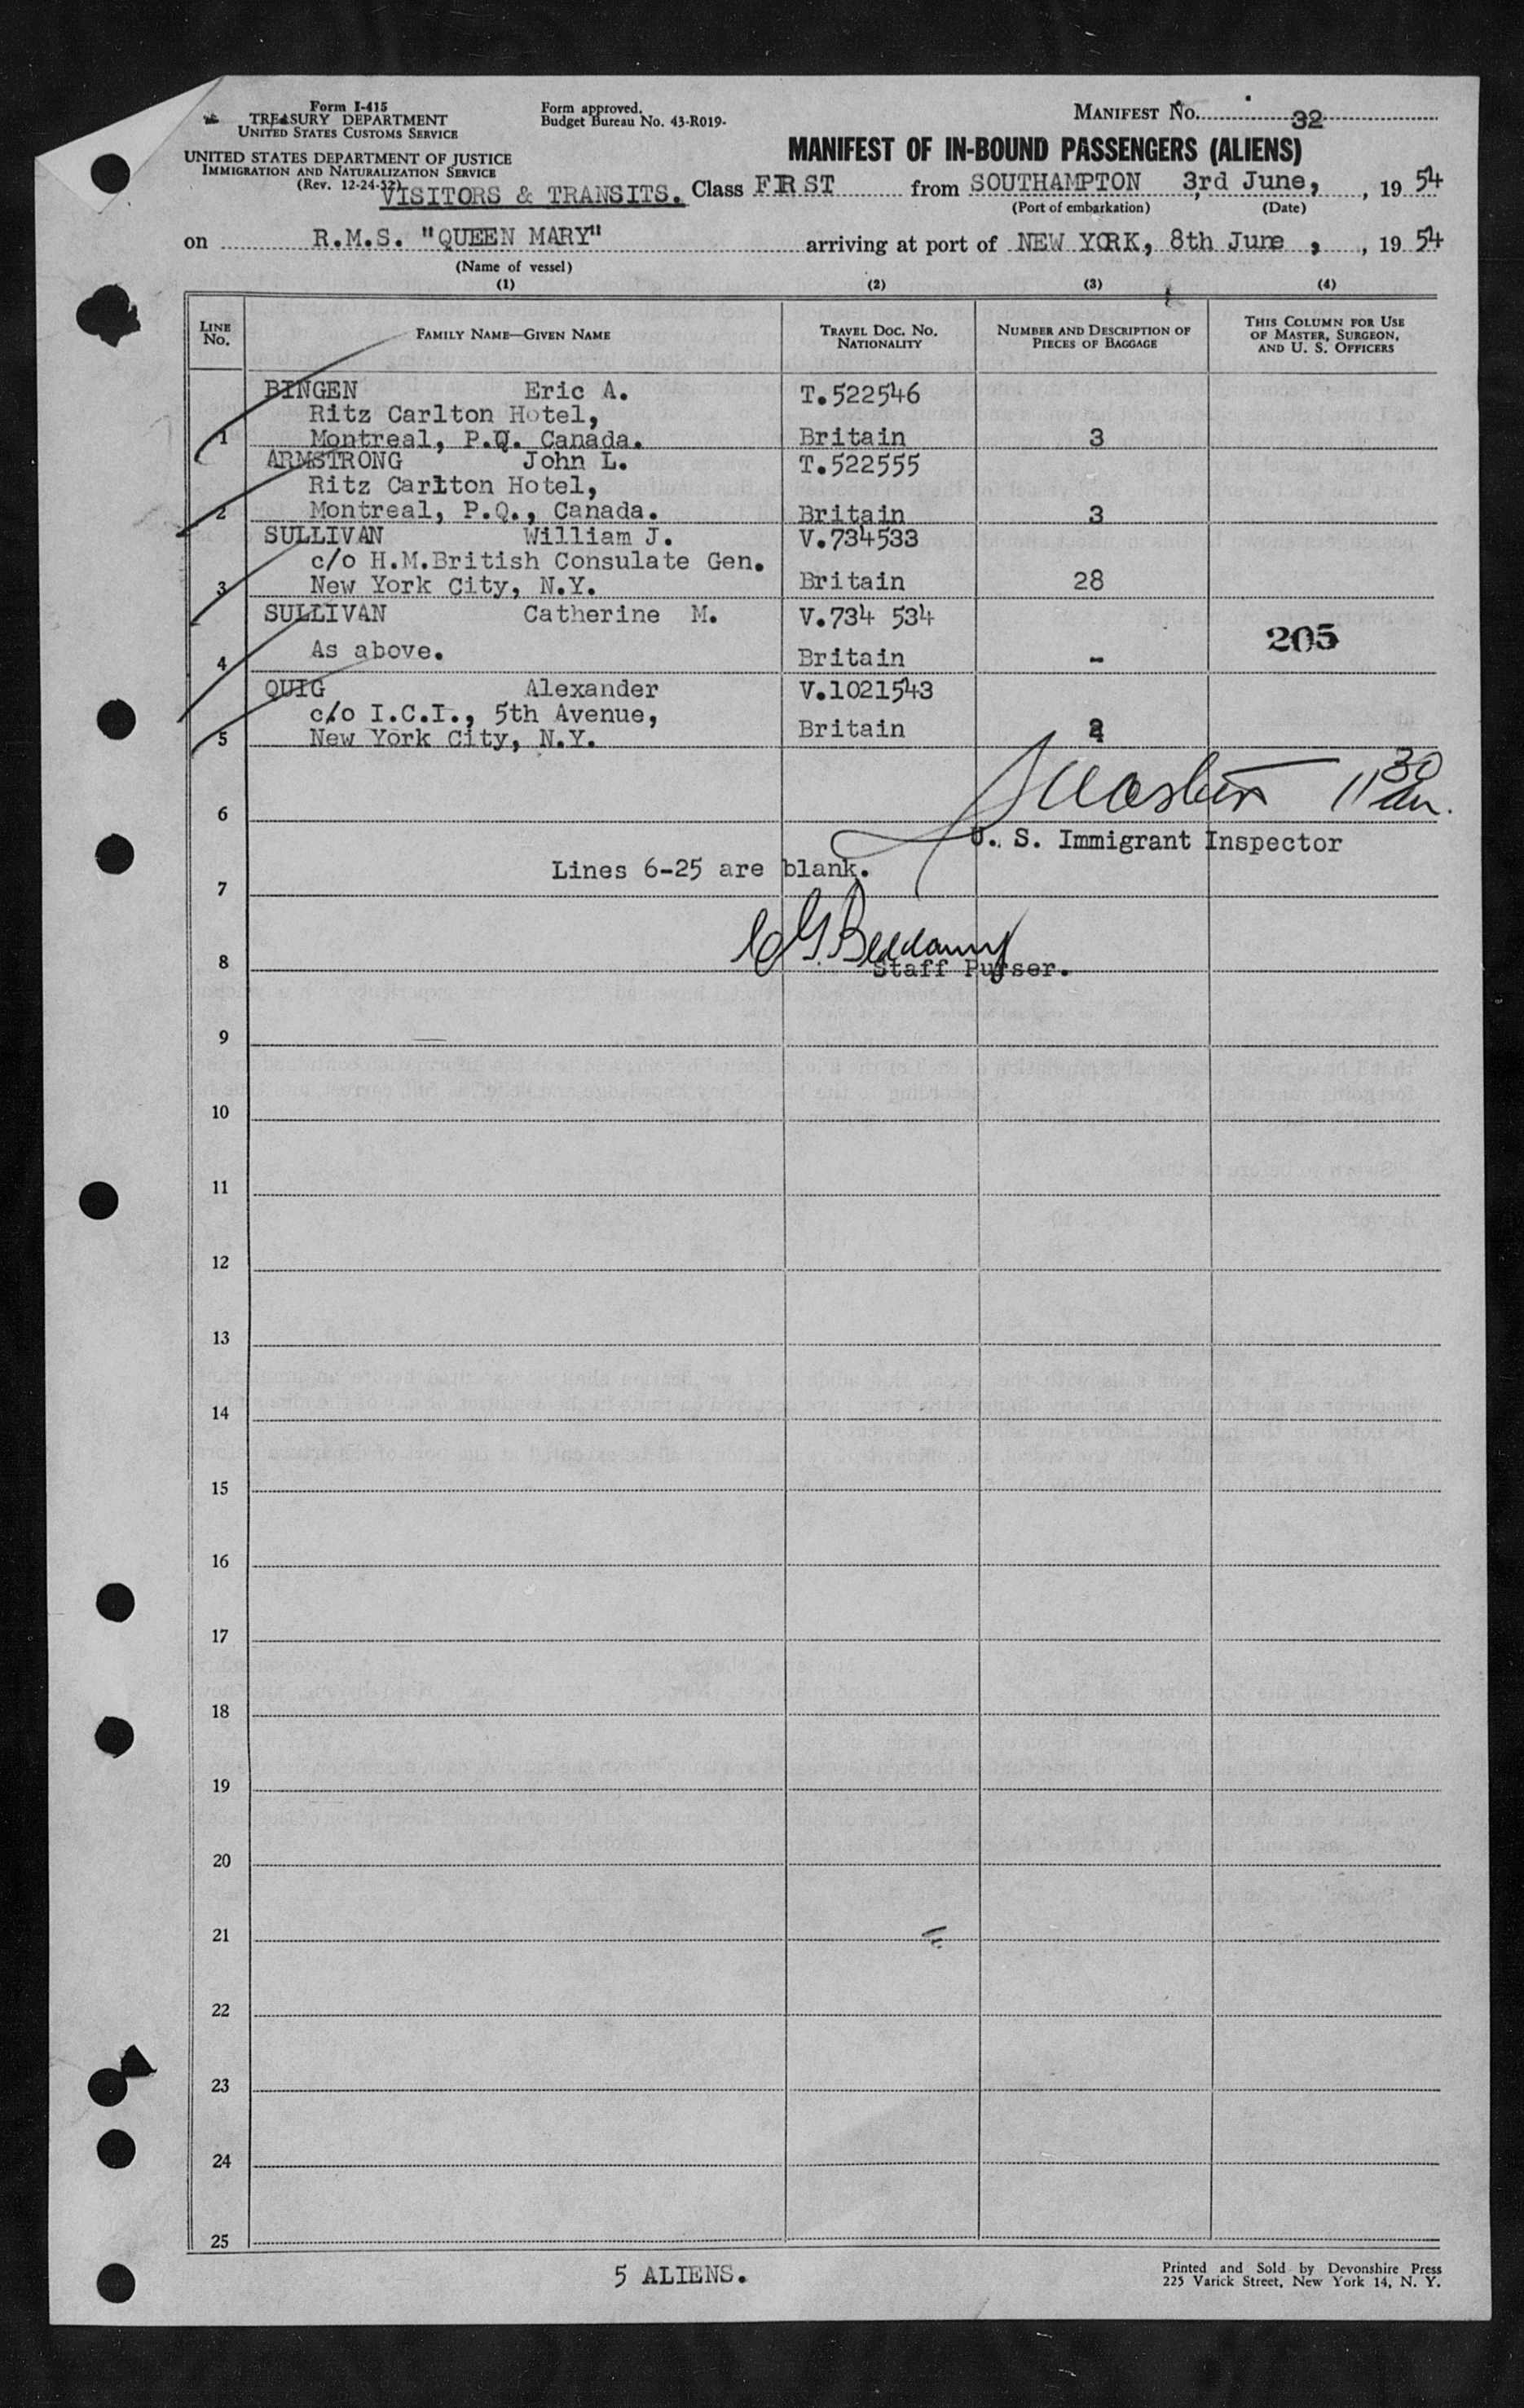 Form I-415
TREASURY DEPARTMENT
UNITED STATES CUSTOMS SERVICE
Form approved.
Budget Bureau No. 43-R019-
MANIFEST No. 32
UNITED STATES DEPARTMENT OF JUSTICE
IMMIGRATION AND NATURALIZATION SERVICE
(Rev. 12-24-52)
MANIFEST OF IN-BOUND PASSENGERS (ALIENS)
VISITORS & TRANSITS. Class FIRST from SOUTHAMPTON, 3rd June, , 19 54
(Port of embarkation) (Date)
on R.M.S. "QUEEN MARY" arriving at port of NEW YORK, 8th June , , 19 54
(Name of vessel)
(1) (2) (3) (4)
LINE No. FAMILY NAME—GIVEN NAME TRAVEL DOC. NO. NATIONALITY NUMBER AND DESCRIPTION OF PIECES OF BAGGAGE THIS COLUMN FOR USE OF MASTER, SURGEON, AND U. S. OFFICERS
BINGEN Eric A. T.522546
Ritz Carlton Hotel,
1 Montreal, P.Q. Canada. Britain 3
ARMSTRONG John L. T.522555
Ritz Carlton Hotel,
2 Montreal, P.Q., Canada. Britain 3
SULLIVAN William J. V.734533
c/o H.M.British Consulate Gen.
3 New York City, N.Y. Britain 28
SULLIVAN Catherine M. V.734 534
205
4 As above. Britain -
QUIG Alexander V.1021543
c/o I.C.I., 5th Avenue,
5 New York City, N.Y. Britain
11 30 am.
6
U. S. Immigrant Inspector
Lines 6-25 are blank.
7
8 Staff Purser.
9
10
11
12
13
14
15
16
17
18
19
20
21
22
23
24
25
5 ALIENS.
Printed and Sold by Devonshire Press
225 Varick Street, New York 14, N. Y.